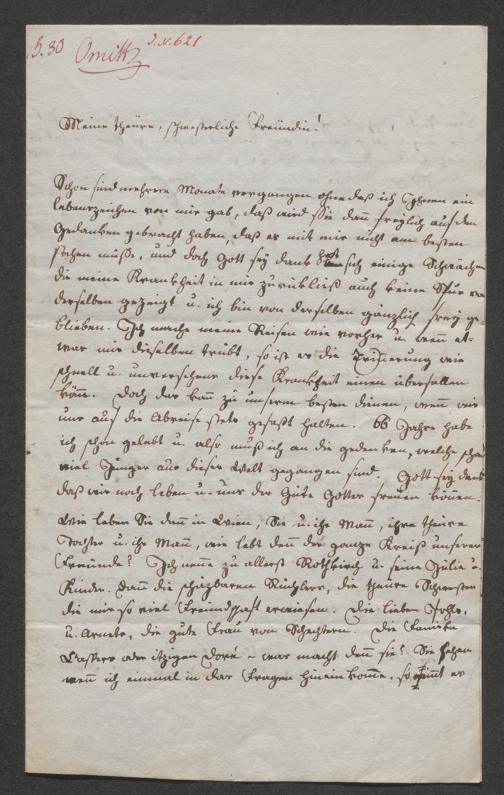 S. 30 J. N. 621
Meine theure, schwesterliche Freundin!
Schon sind mehrere Monate vergangen ohne daß ich Ihnen ein
Lebenszeichen von mir gab, daß wird Sie dann freylich auf den
Gedanken gebracht haben, daß es mit mir nicht am besten
stehen müße, und doch Gott sey dank hat sich einige Schwäche
die meine Krankheit in mir zurückließ auch keine Spur von
derselben gezeigt u. ich bin von derselben gänzlich frey ge-
blieben. Ich mache meine Reisen wie vorher u. wenn et-
was mir dieselben trübt, so ist es die Erinnerung wie
schnell u. unversehens diese Krankheit einen überfallen
könne. Doch das kan zu unserm besten dienen, wenn wir
uns auf die Abreise stets gefaßt halten. 66 Jahre habe
ich schon gelebt u. also muß ich an die gedenken, welche schon
viel jünger aus dieser Welt gegangen sind. Gott sey dank
daß wir noch leben u. uns der Güte Gottes freuen können.
Wie leben Sie denn in Wien, Sie u. ihr Mann, ihre theure
Tochter u. ihr Mann, wie lebt denn der ganze Kreiß unserer
Freunde? Ich nenne zu allerst Rothkirch u. seine Julie u.
Kinder. Dann die schäzbaren die theure Schwester
die mir so viel Freundschaft erwiesen. Die lieben
u. Arneth, die gute Frau von Schechtern. Die Familie
oder itzigen Doré - was macht denn sie? Sie sehen
wenn ich einmal in das Fragen hinein komme, so nimmt es